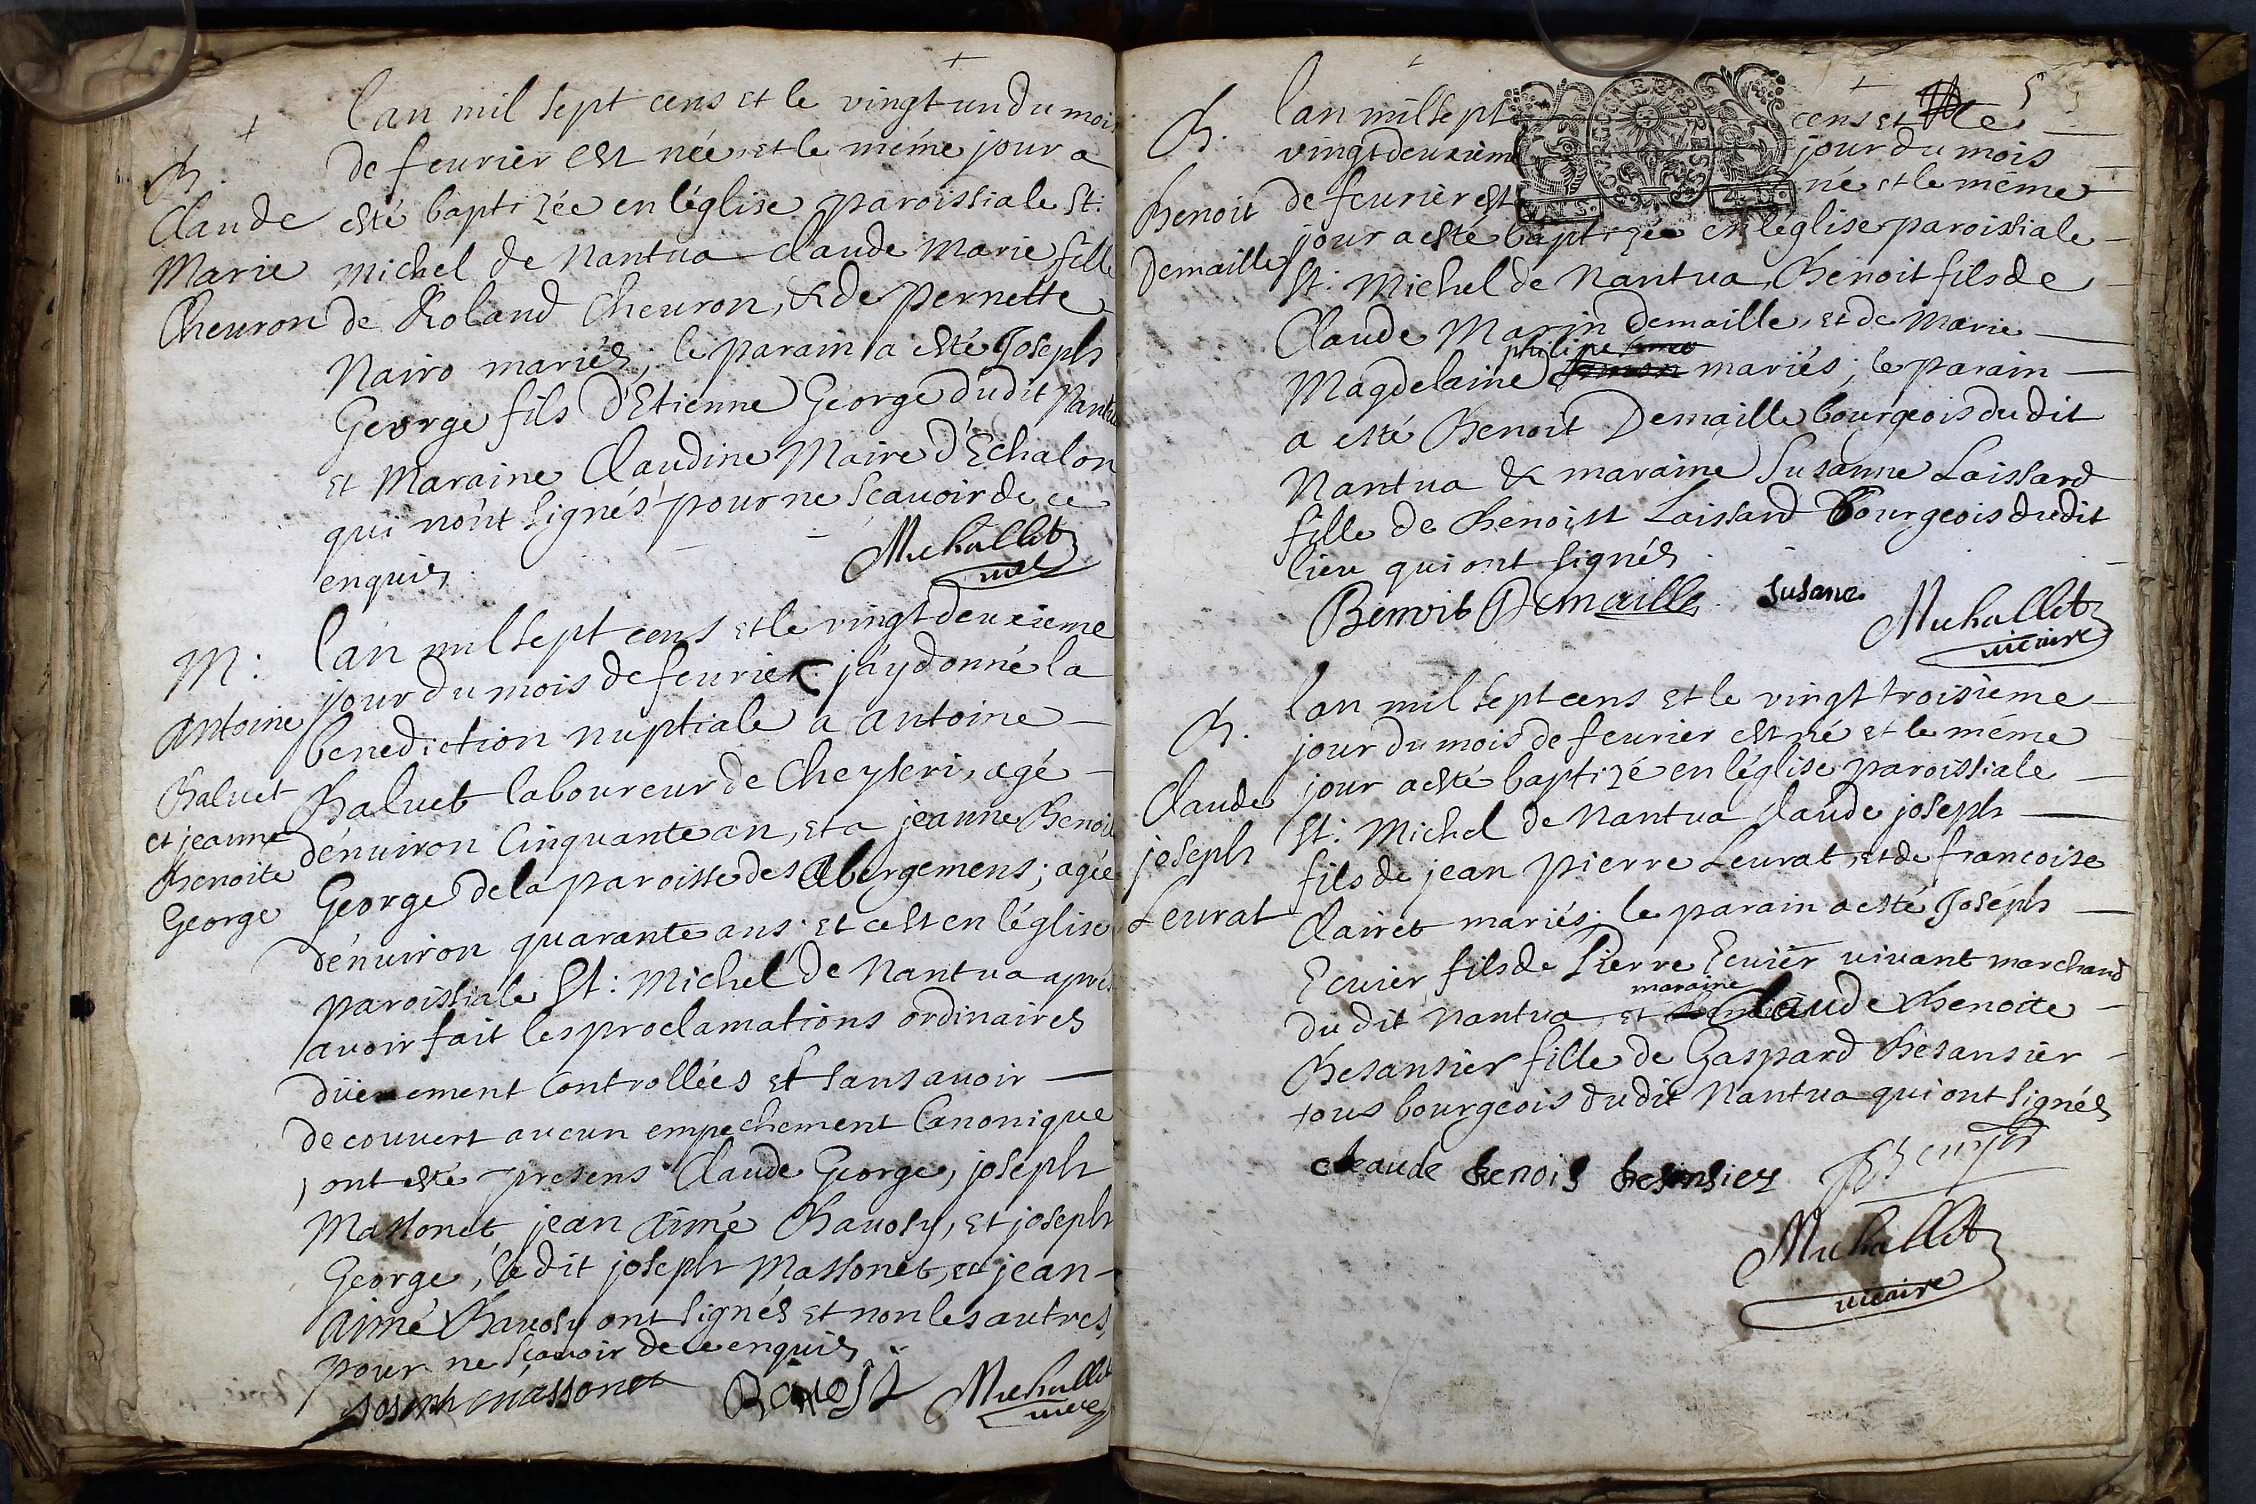 l'an mil sept cens et le vingt un du mois
B.
de feurier est née et le méme jour a
Claude
esté baptizée en l'église paroissiale St:
Marie
michel de Nantua Claude Marie fille
Cheuron
de Roland Cheuron, & de pernette
Nairo mariés; le parain a esté Joseph
George fils d'Etienne George dudit Nantua
et Maraine Claudine Maire d'Echalon
qui n'ont signés pour ne scauoir de ce
enquis
Michallet
vicre
M:
l'an mil sept cens et le vingt deuxieme
jour du mois de feurier j'ay donné la
Antoine
benediction nuptiale a antoine
Baluet
Baluet laboureur de Cheyseri, agé
et jeanne
d'enuiron Cinquante an, et a jeanne Benoite
Benoite
George de la paroisse des Abergemens; agée
George
d'enuiron quarante ans et cest en l'église
paroissiale St: Michel de Nantua aprés
auoir fait les proclamations ordinaires
düement Controllées et sans auoir
decouuert aucun empechement Canonique
ont esté presens Claude George, joseph
Massonet, jean Aimé Bauosy, et joseph
George, le dit joseph Massonet, et jean
Aimé Bauosy ont signés et non les autres,
pour ne scauoir de ce enquis
Joseph Massonet
Michallet
vicre
5
B.
l'an mil sept cens et le
vingtdeuxieme jour du mois
Benoit
de feurier est né et le méme
Demaille
jour a esté baptizée en l'église paroissiale
St: Michel de Nantua, Benoit fils de
Claude Marin Demaille, et de Marie
philipe
Magdelaine mariés; le parain
a esté Benoit Demaille bourgeois du dit
Nantua & maraine Susanne Laissard
fille de Benoist Laissard Bourgeois dudit
lieu qui ont signés
Benoit Demaille
Susane
Michallet
vicaire
B.
l'an mil sept cens et le vingt troisième
jour du mois de feurier est né et le méme
Claude
jour a esté baptizé en l'église paroissiale
joseph
St: Michel de Nantua Claude joseph
Leurat
fils de jean pierre Leurat, et de francoise
Clairet mariés; le parain a esté Joséph
Ecuier fils de Pierre Ecuier vivant marchand
maraine
du dit Nantua, et Claude Benoite
Besansier fille de Gaspard Besansier
tous bourgeois du dit Nantua qui ont signés
cleaude benois besansier
Michallet
vicaire